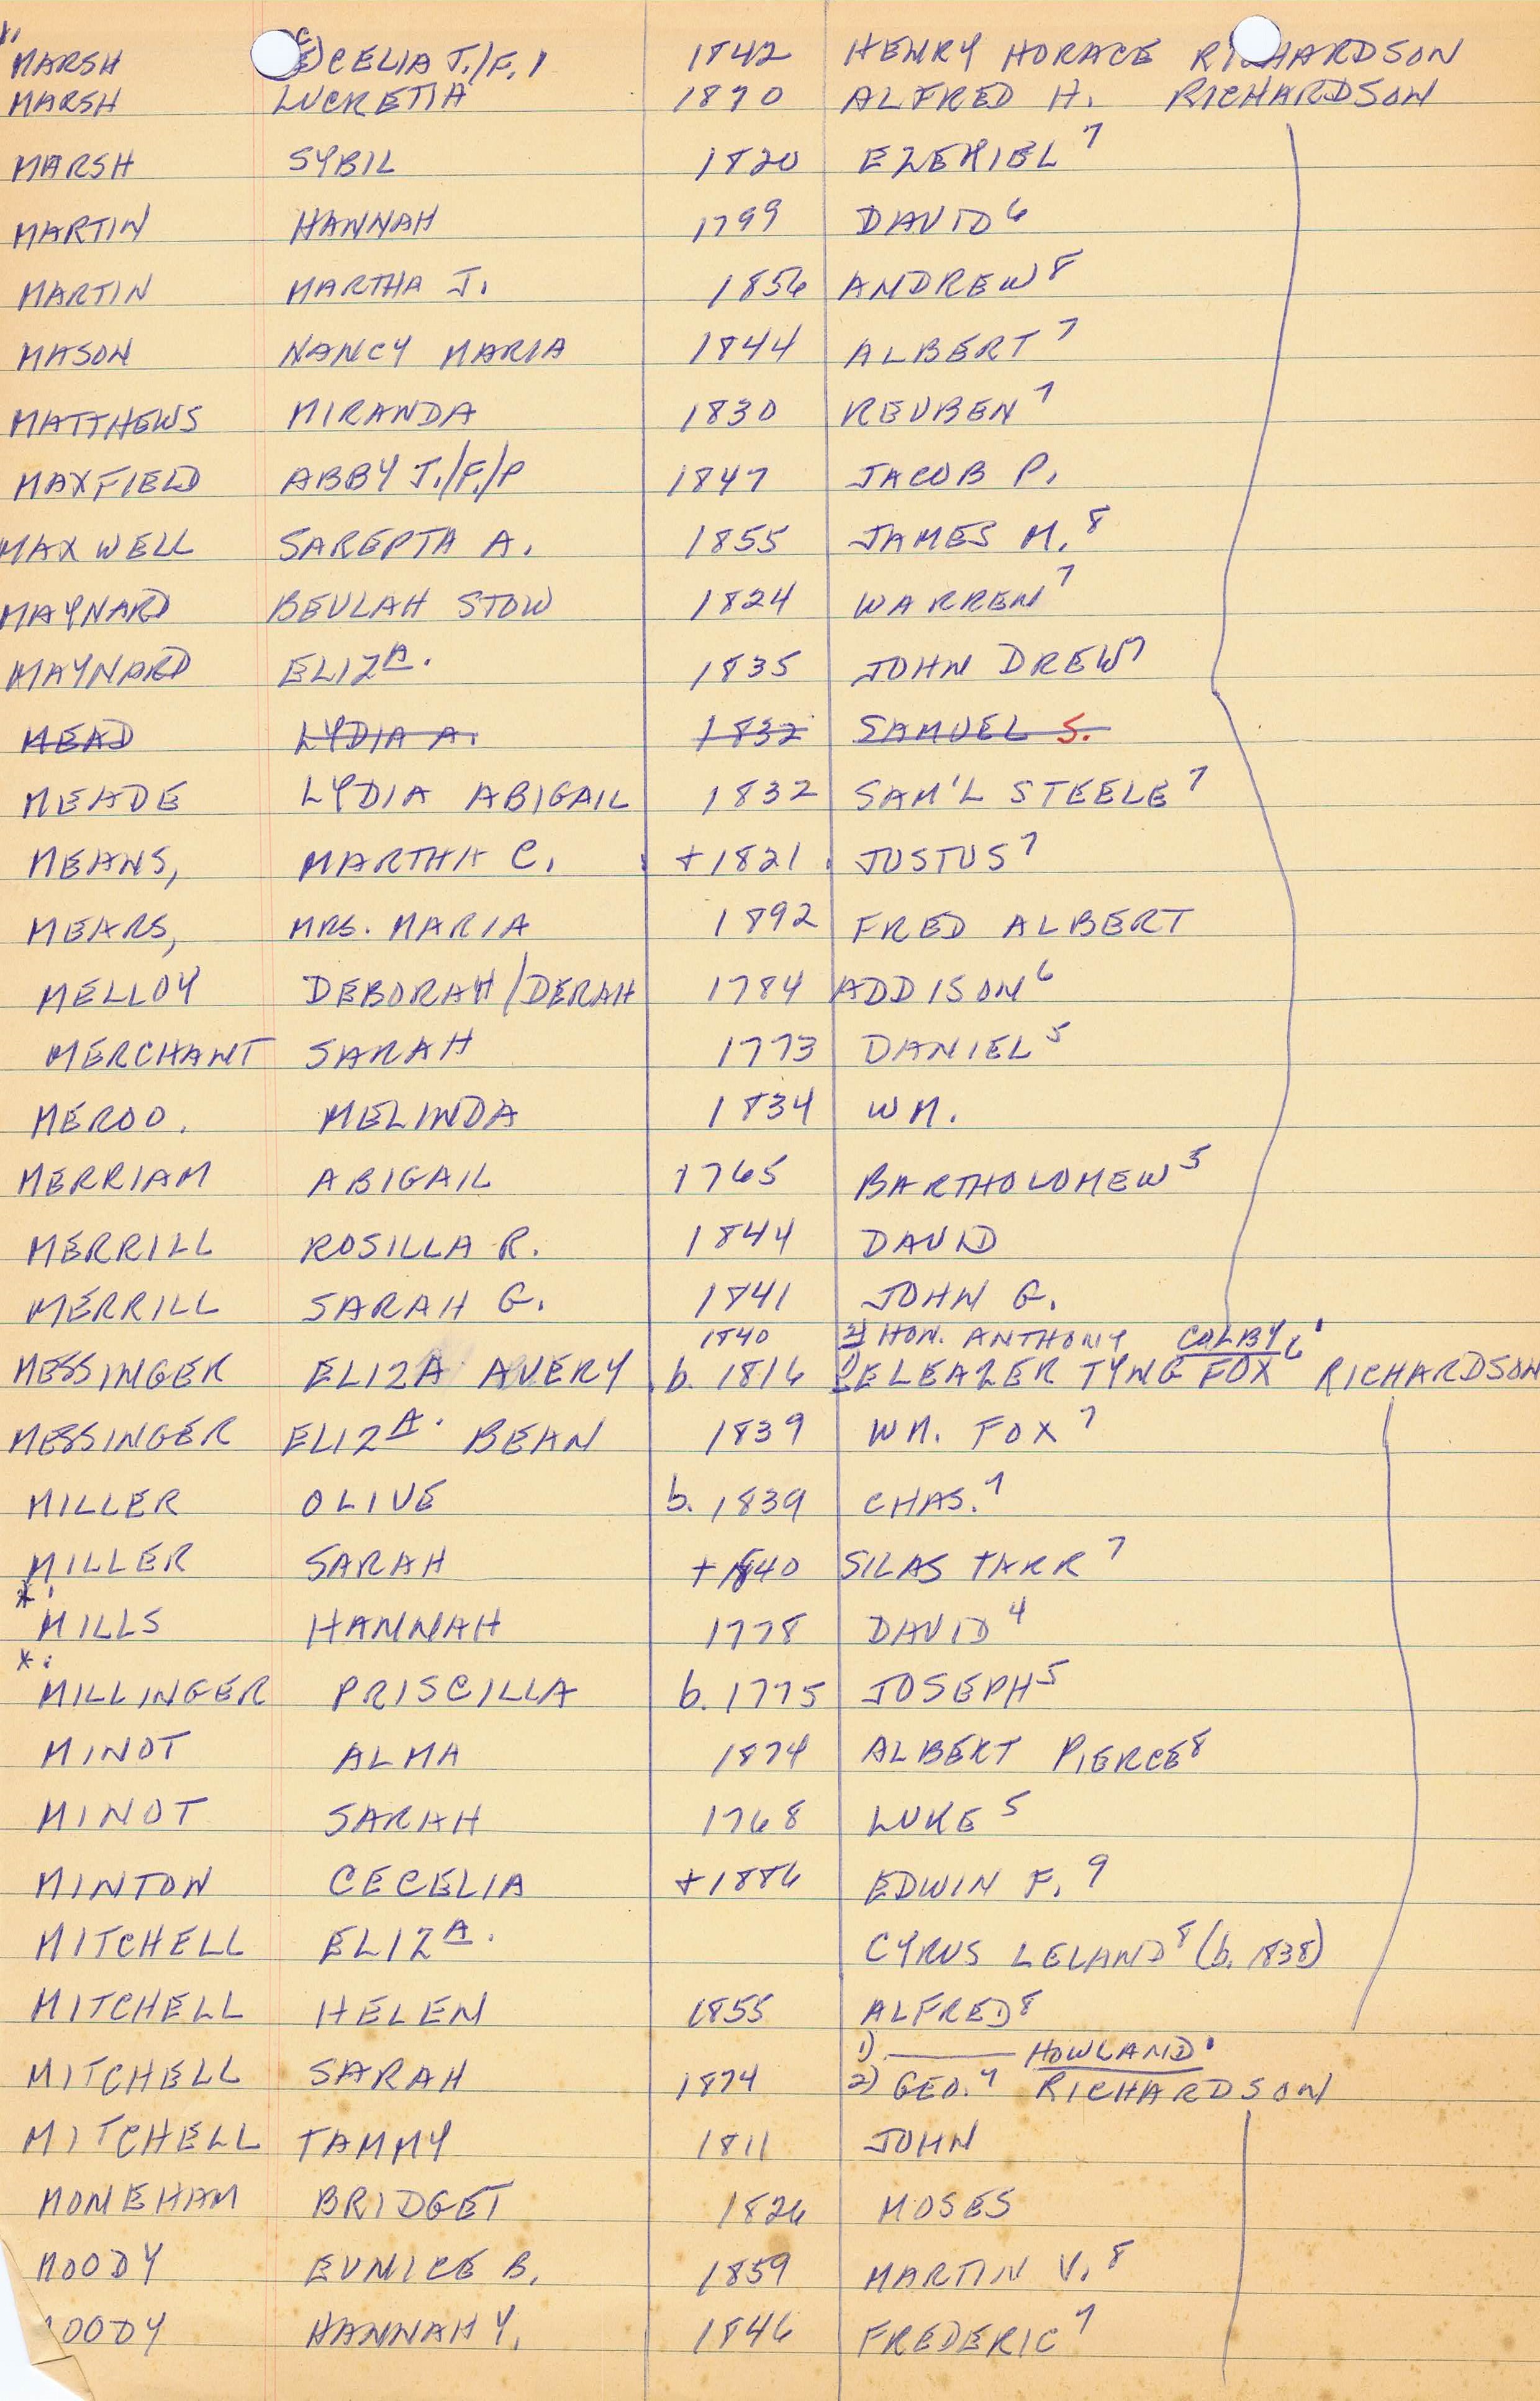 MARSH CELIA J./F. 1842 HENRY HORACE RICHARDSON
MARSH LUCRETIA 1870 ALFRED H. RICHARDSON
MARSH SYBIL 1820 EZEKIEL 7
MARTIN HANNAH 1799 DAVID 6
MARTIN MARTHA J. 1856 ANDREW 8
MASON NANCY MARIA 1844 ALBERT 7
MATTHEWS MIRANDA 1830 REUBEN 7
MAXFIELD ABBY J./F./P 1847 JACOB P.
MAXWELL SAREPTA A. 1855 JAMES M. 8
MAYNARD BEULAH STOW 1824 WARREN 7
MAYNARD ELIZA. 1835 JOHN DREW 7
MEAD LYDIA A. 1832 SAMUEL S.
MEADE LYDIA ABIGAIL 1832 SAM'L STEELE 7
MEANS, MARTHA C. +1821 JUSTUS 7
MEARS, MRS. MARIA 1892 FRED ALBERT
MELLOY DEBORAH/DERAH 1784 ADDISON 6
MERCHANT SARAH 1773 DANIEL 5
MEROO. MELINDA 1834 WM.
MERRIAM ABIGAIL 1765 BARTHOLOMEW 5
MERRILL ROSILLA R. 1844 DAVID
MERRILL SARAH G. 1841 JOHN G.
1840 2) HON. ANTHONY COLBY 6
MESSINGER ELIZA AVERY b. 1816 1) ELEAZER TYNG FOX RICHARDSON
MESSINGER ELIZA. BEAN 1839 WM. FOX 7
MILLER OLIVE b. 1839 CHAS. 7
MILLER SARAH +1840 SILAS TARR 7
* MILLS HANNAH 1778 DAVID 4
* MILLINGER PRISCILLA b. 1775 JOSEPH 5
MINOT ALMA 1874 ALBERT PIERCE 8
MINOT SARAH 1768 LUKE 5
MINTON CECELIA +1886 EDWIN F. 9
MITCHELL ELIZA. CYRUS LELAND 8 (b. 1838)
MITCHELL HELEN 1855 ALFRED 8
1) ——— HOWLAND
MITCHELL SARAH 1874 2) GEO. 7 RICHARDSON
MITCHELL TAMMY 1811 JOHN
MONEHAM BRIDGET 1826 MOSES
MOODY EUNICE B. 1859 MARTIN V. 8
OODY HANNAH Y. 1846 FREDERIC 7